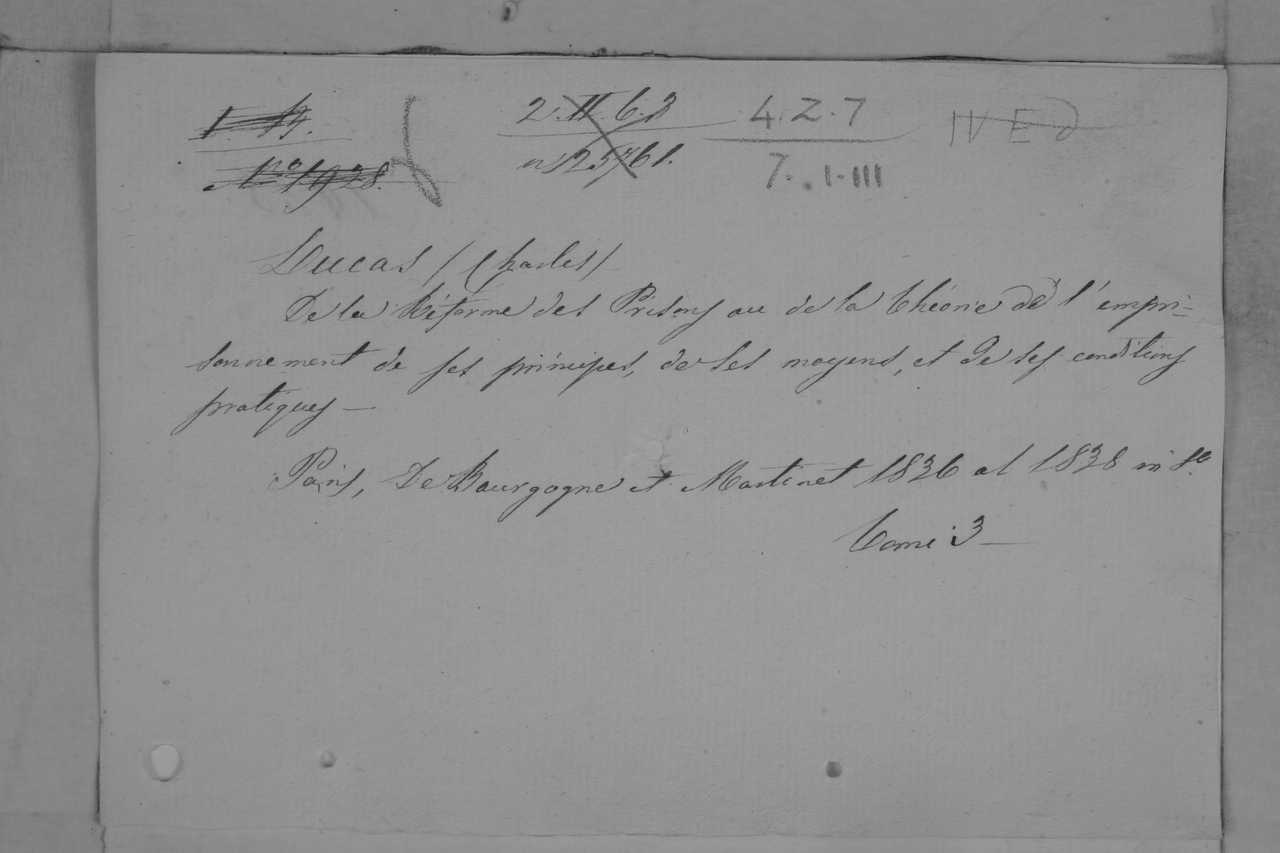 2. II. 6. 2 4. Z. 7 IV E d
Nº 1928. ns 25761. 7. I-III
Lucas (Charles)
De la Réforme des Prisons ou de la Théorie de l'empri-
sonnement de ses principes, de ses moyens, et de ses conditions
pratiques —
Paris, De Bourgogne et Martinet 1836 al 1838 in 8º
Tomi 3 —